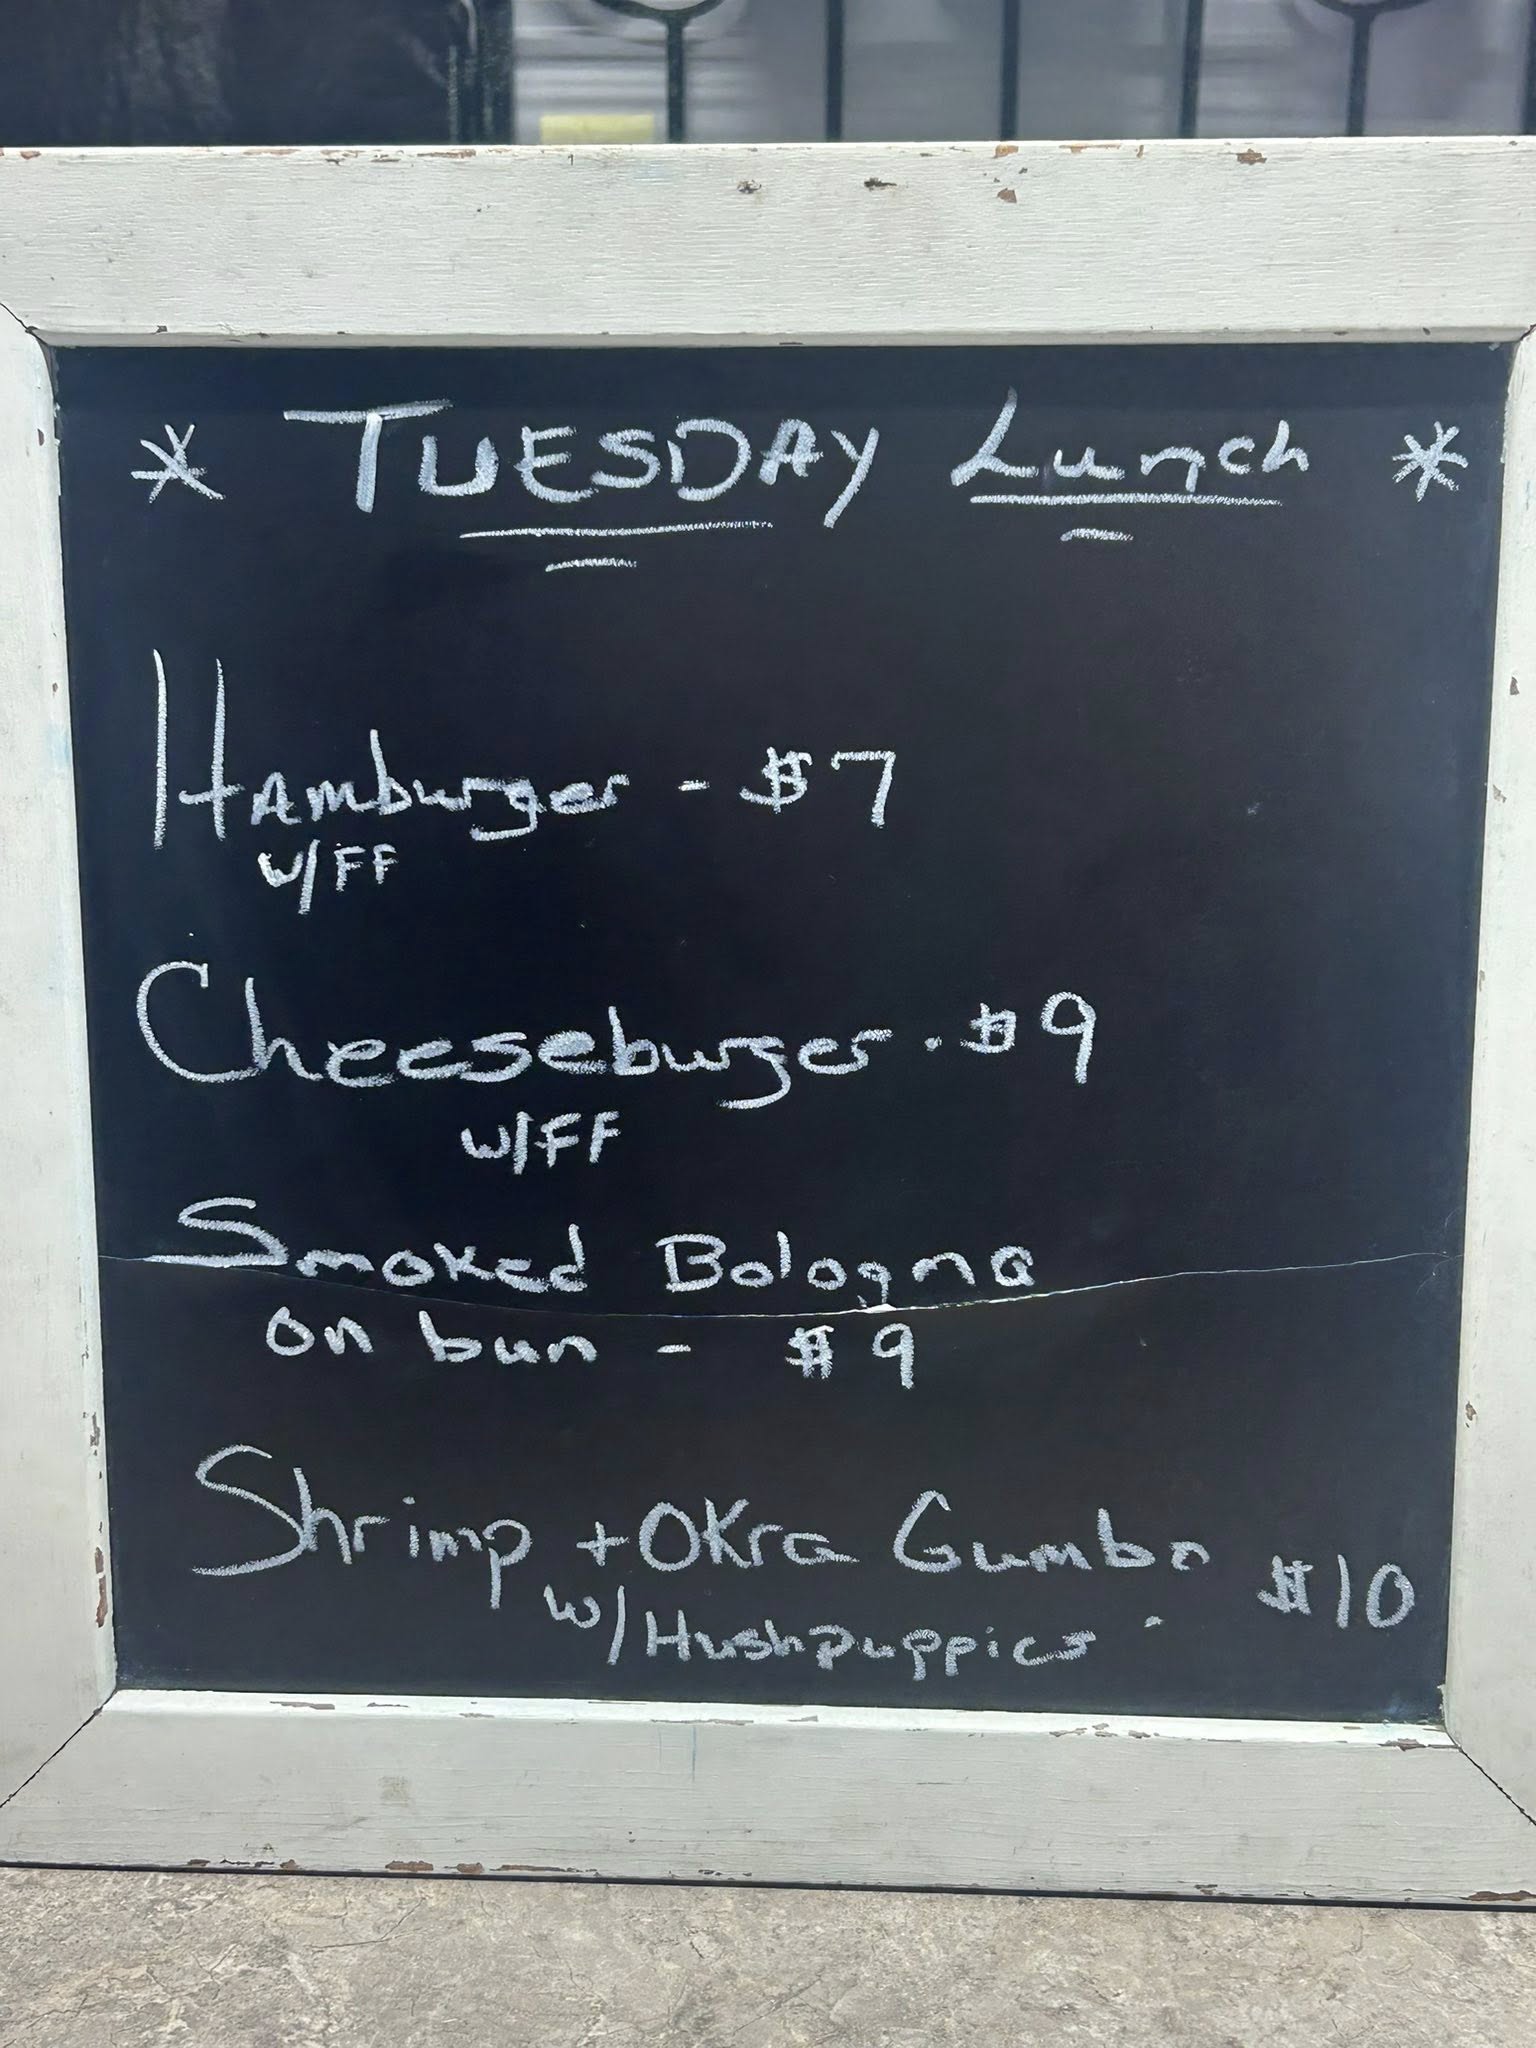 * TUESDAY Lunch *
Hamburger - $7
w/FF
Cheeseburger - $9
w/FF
Smoked Bologna
on bun - $9
Shrimp + Okra Gumbo $10
w/Hushpuppies -